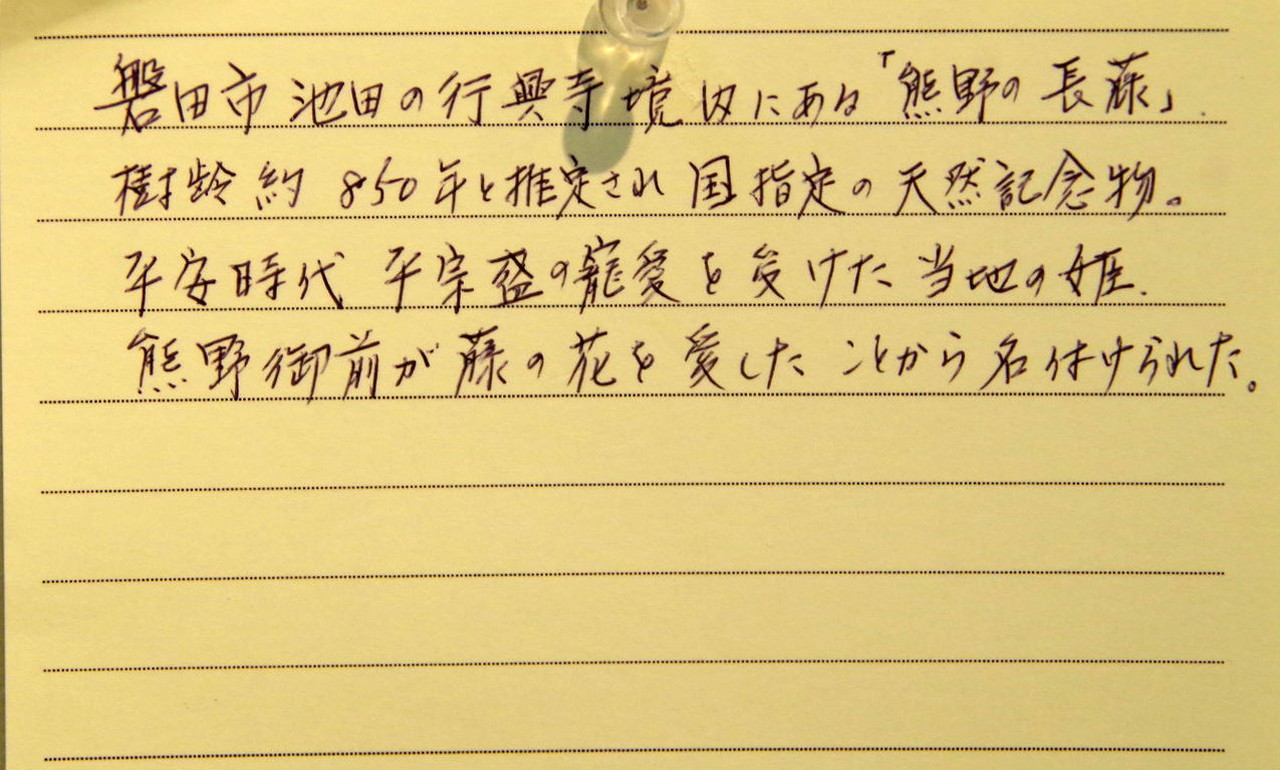 磐田市 池田の行興寺境内にある「熊野の長藤」.
樹齢約850年と推定され 国指定の天然記念物。
平安時代 平宗盛の寵愛を受けた当地の姫.
熊野御前が藤の花を愛したことから名付けられた。